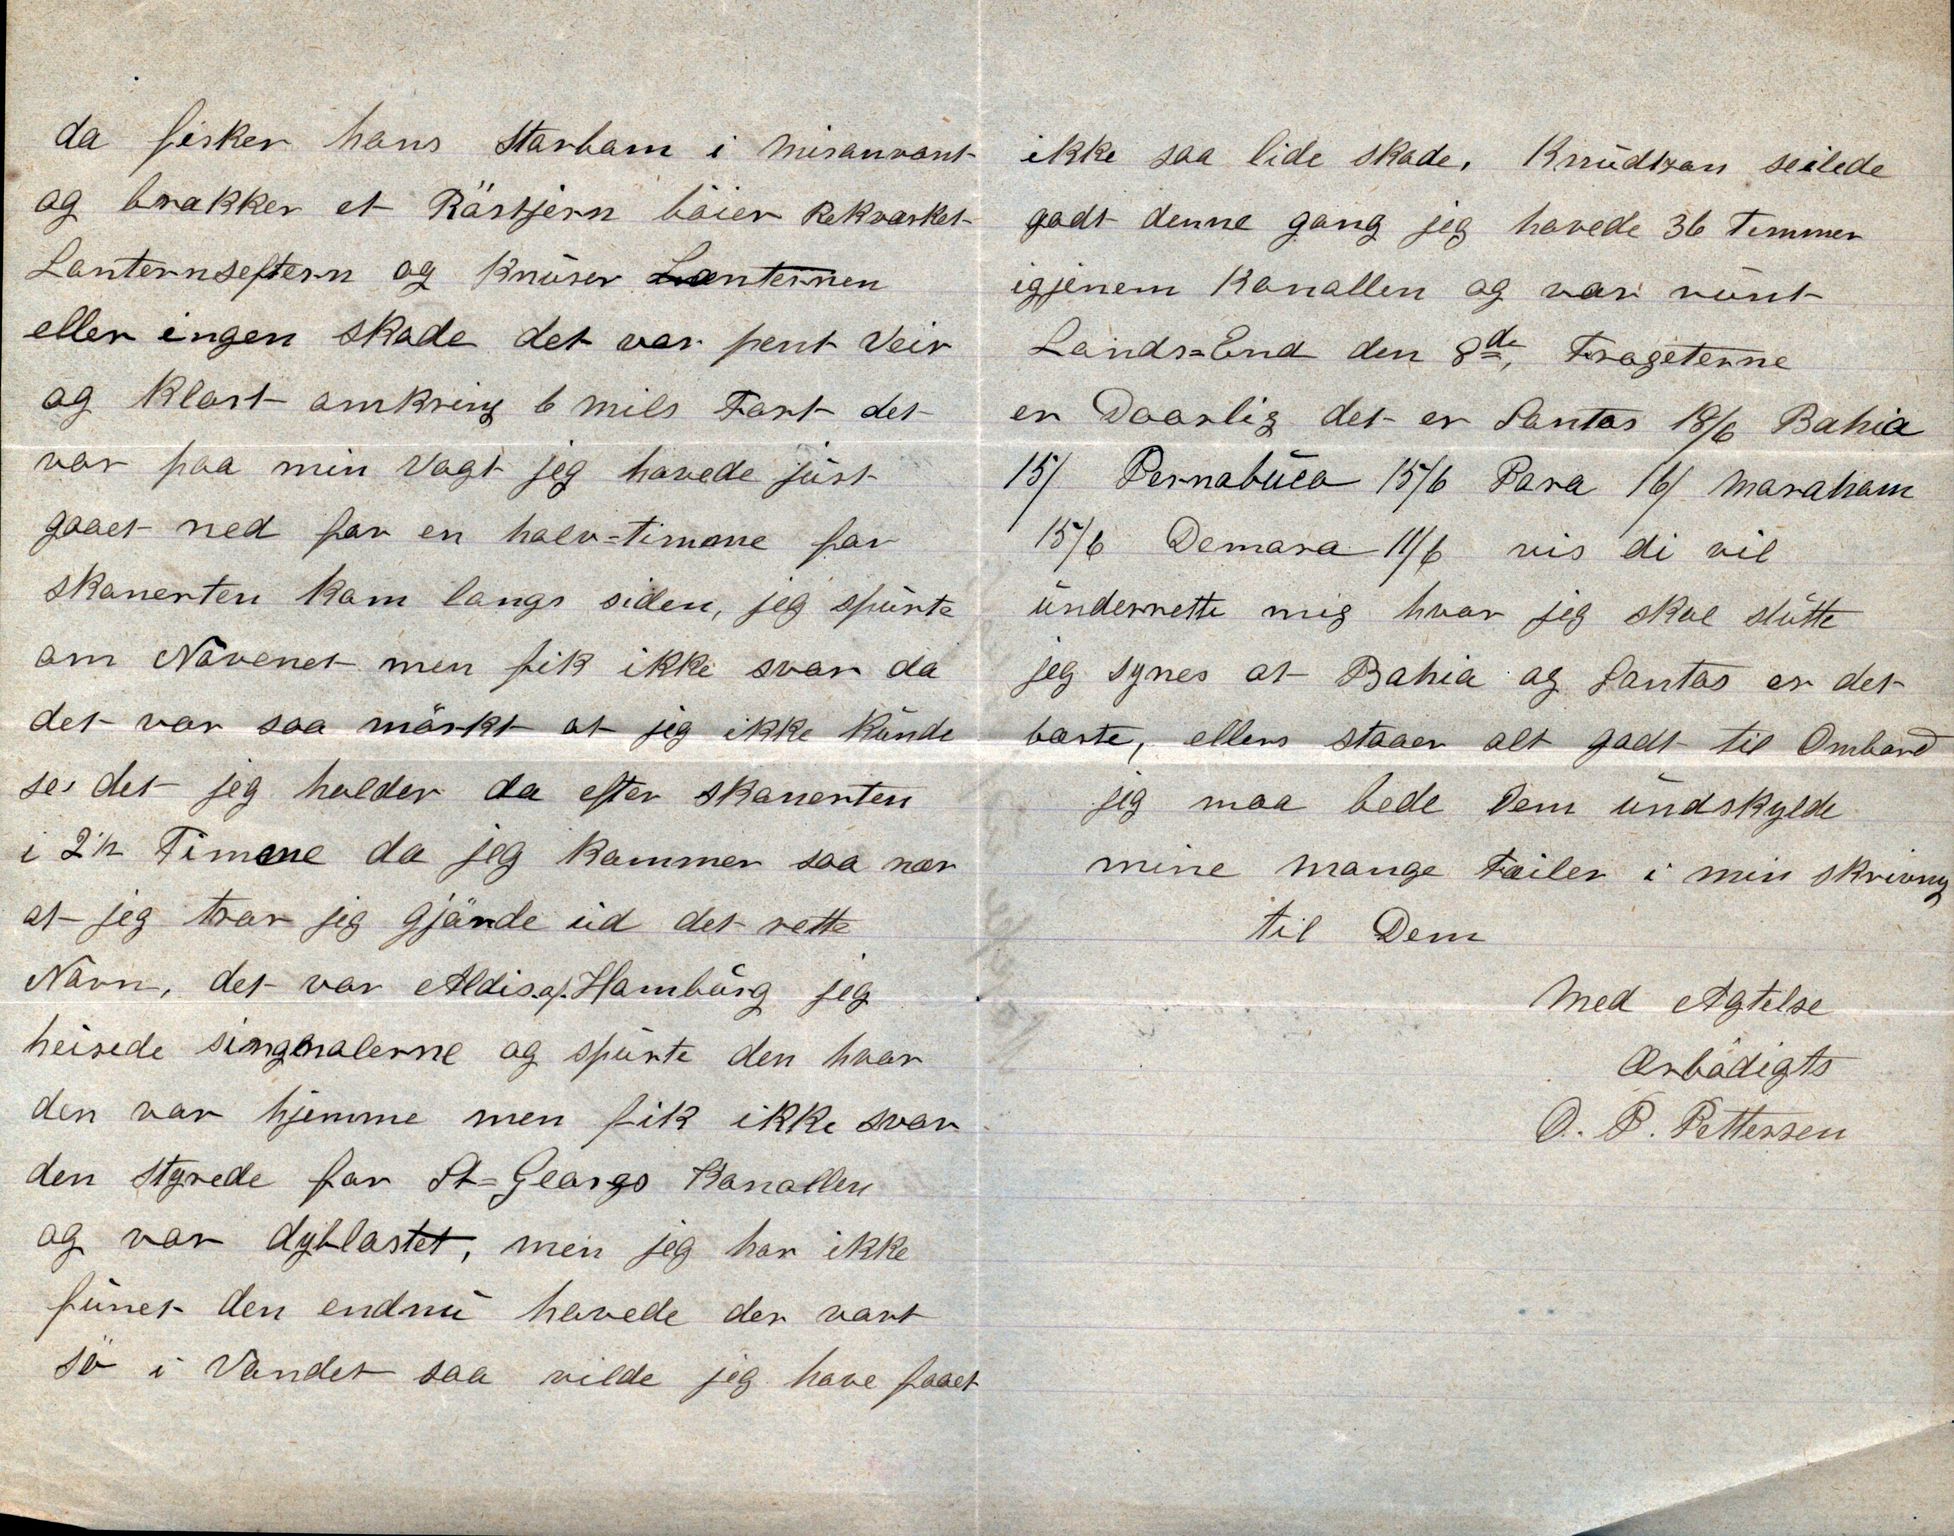 da fisker hans starbam i misanvant
og brækker et Röstjern böier Rekværket
Lanternseftern og Knüser Lanternen
eller ingen skade det var pent Veir
og Klart omkring 6 mils Fart det
var paa min Vagt jeg havede jüst
gaaet ned for en halv=timme før
skonerten kom langs siden, jeg spürte
om Navenet men fik ikke svar da
det var saa mörkt at jeg ikke Künde
se det jeg holder da efter skonerten
i 2½ Timme da jeg kommer saa nær
at jeg tror jeg gjörde üd det rette
Navn, det var Aldis af Hambürg jeg
heisede singnalerne og spürte den hvor
den var hjemme men fik ikke svar
den styrede for St=Georgs Kanallen
og var dyblastet, men jeg har ikke
fünet den endnü havede der vart
sö i Vandet saa vilde jeg have faaet
ikke saa lide skade. Knüdtzon seilede
godt denne gang jeg havede 36 Timmer
igjenem Kanallen og var rünt
Lands=End den 8de, Frageterne
er Daarlig det er Santos 18/6 Bahia
15/ Pernabüco 15/6 Para 16/ Maraham
15/6 Demara 11/6 vis di vil
ünderrette mig hvor jeg skal slütte
jeg synes at Bahia og Santos er det
bæste, ellers staaer alt godt til Ombord
jeg maa bede Dem ündskylde
mine mange Fæiler i min skrivnig
til Dem
Med Agtelse
Ærbödigts
O. P. Pettersen